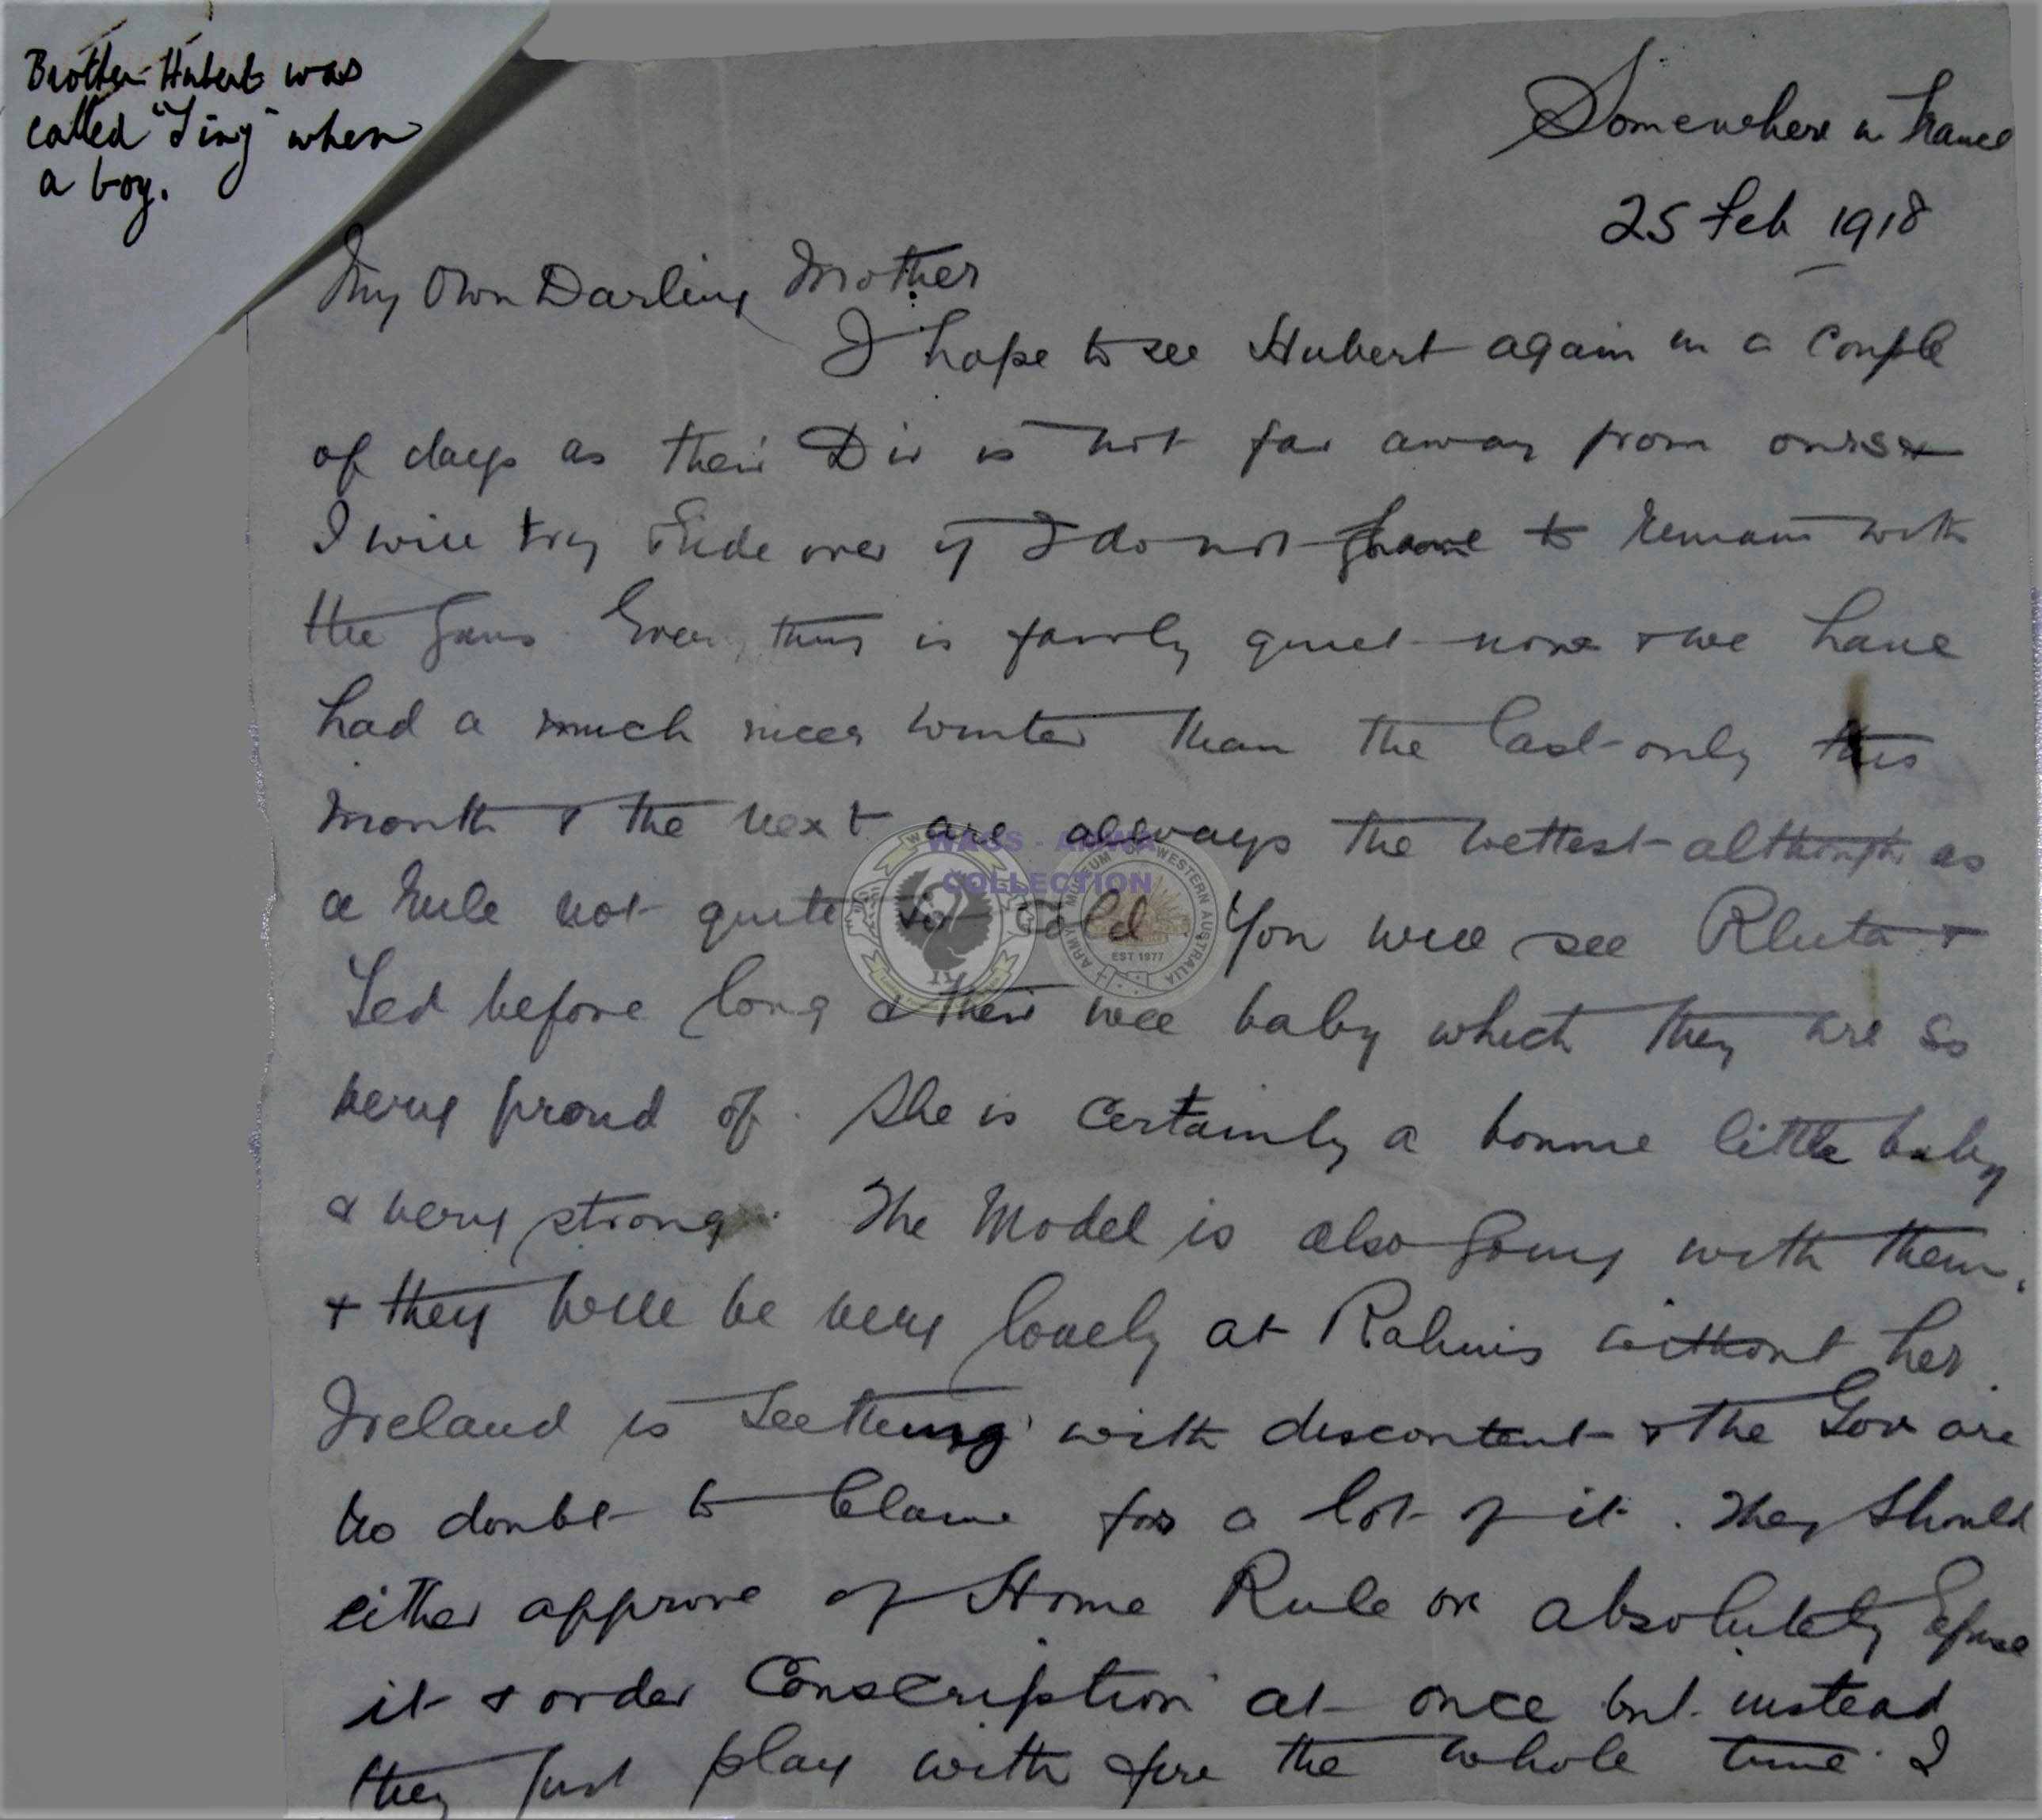 Brother Hubert was
called "Tiny" when
a boy.
Somewhere in France
25 Feb 1918
My Own Darling Mother
I hope to see Hubert again in a couple
of days as their Div is not far away from ours &
I will try & ride over if I do not have to remain with
the guns. Every thing is fairly quiet now & we have
had a much nicer winter than the last only this
month & the next are allways the wettest although as
a rule not quite so cold You will see Rheta &
Ted before long & their wee baby which they are so
very proud of. She is certainly a bonnie little baby
& very strong. The Model is also going with them.
& they will be very lonely at Rahinis without her.
Ireland is seething with discontent & the Gov are
no doubt to blame for a lot of it. They should
either approve of Home Rule or absolutely refuse
it & order Conscription at once but instead
they just play with fire the whole time. I
WAGS - AMWA
COLLECTION
ARMY MUSEUM OF WESTERN AUSTRALIA
EST 1977